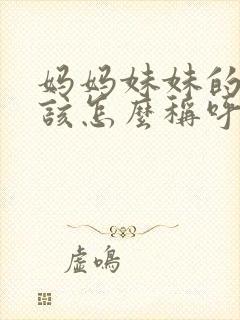 妈妈妹妹的
该怎麽稱呼
虚鳴